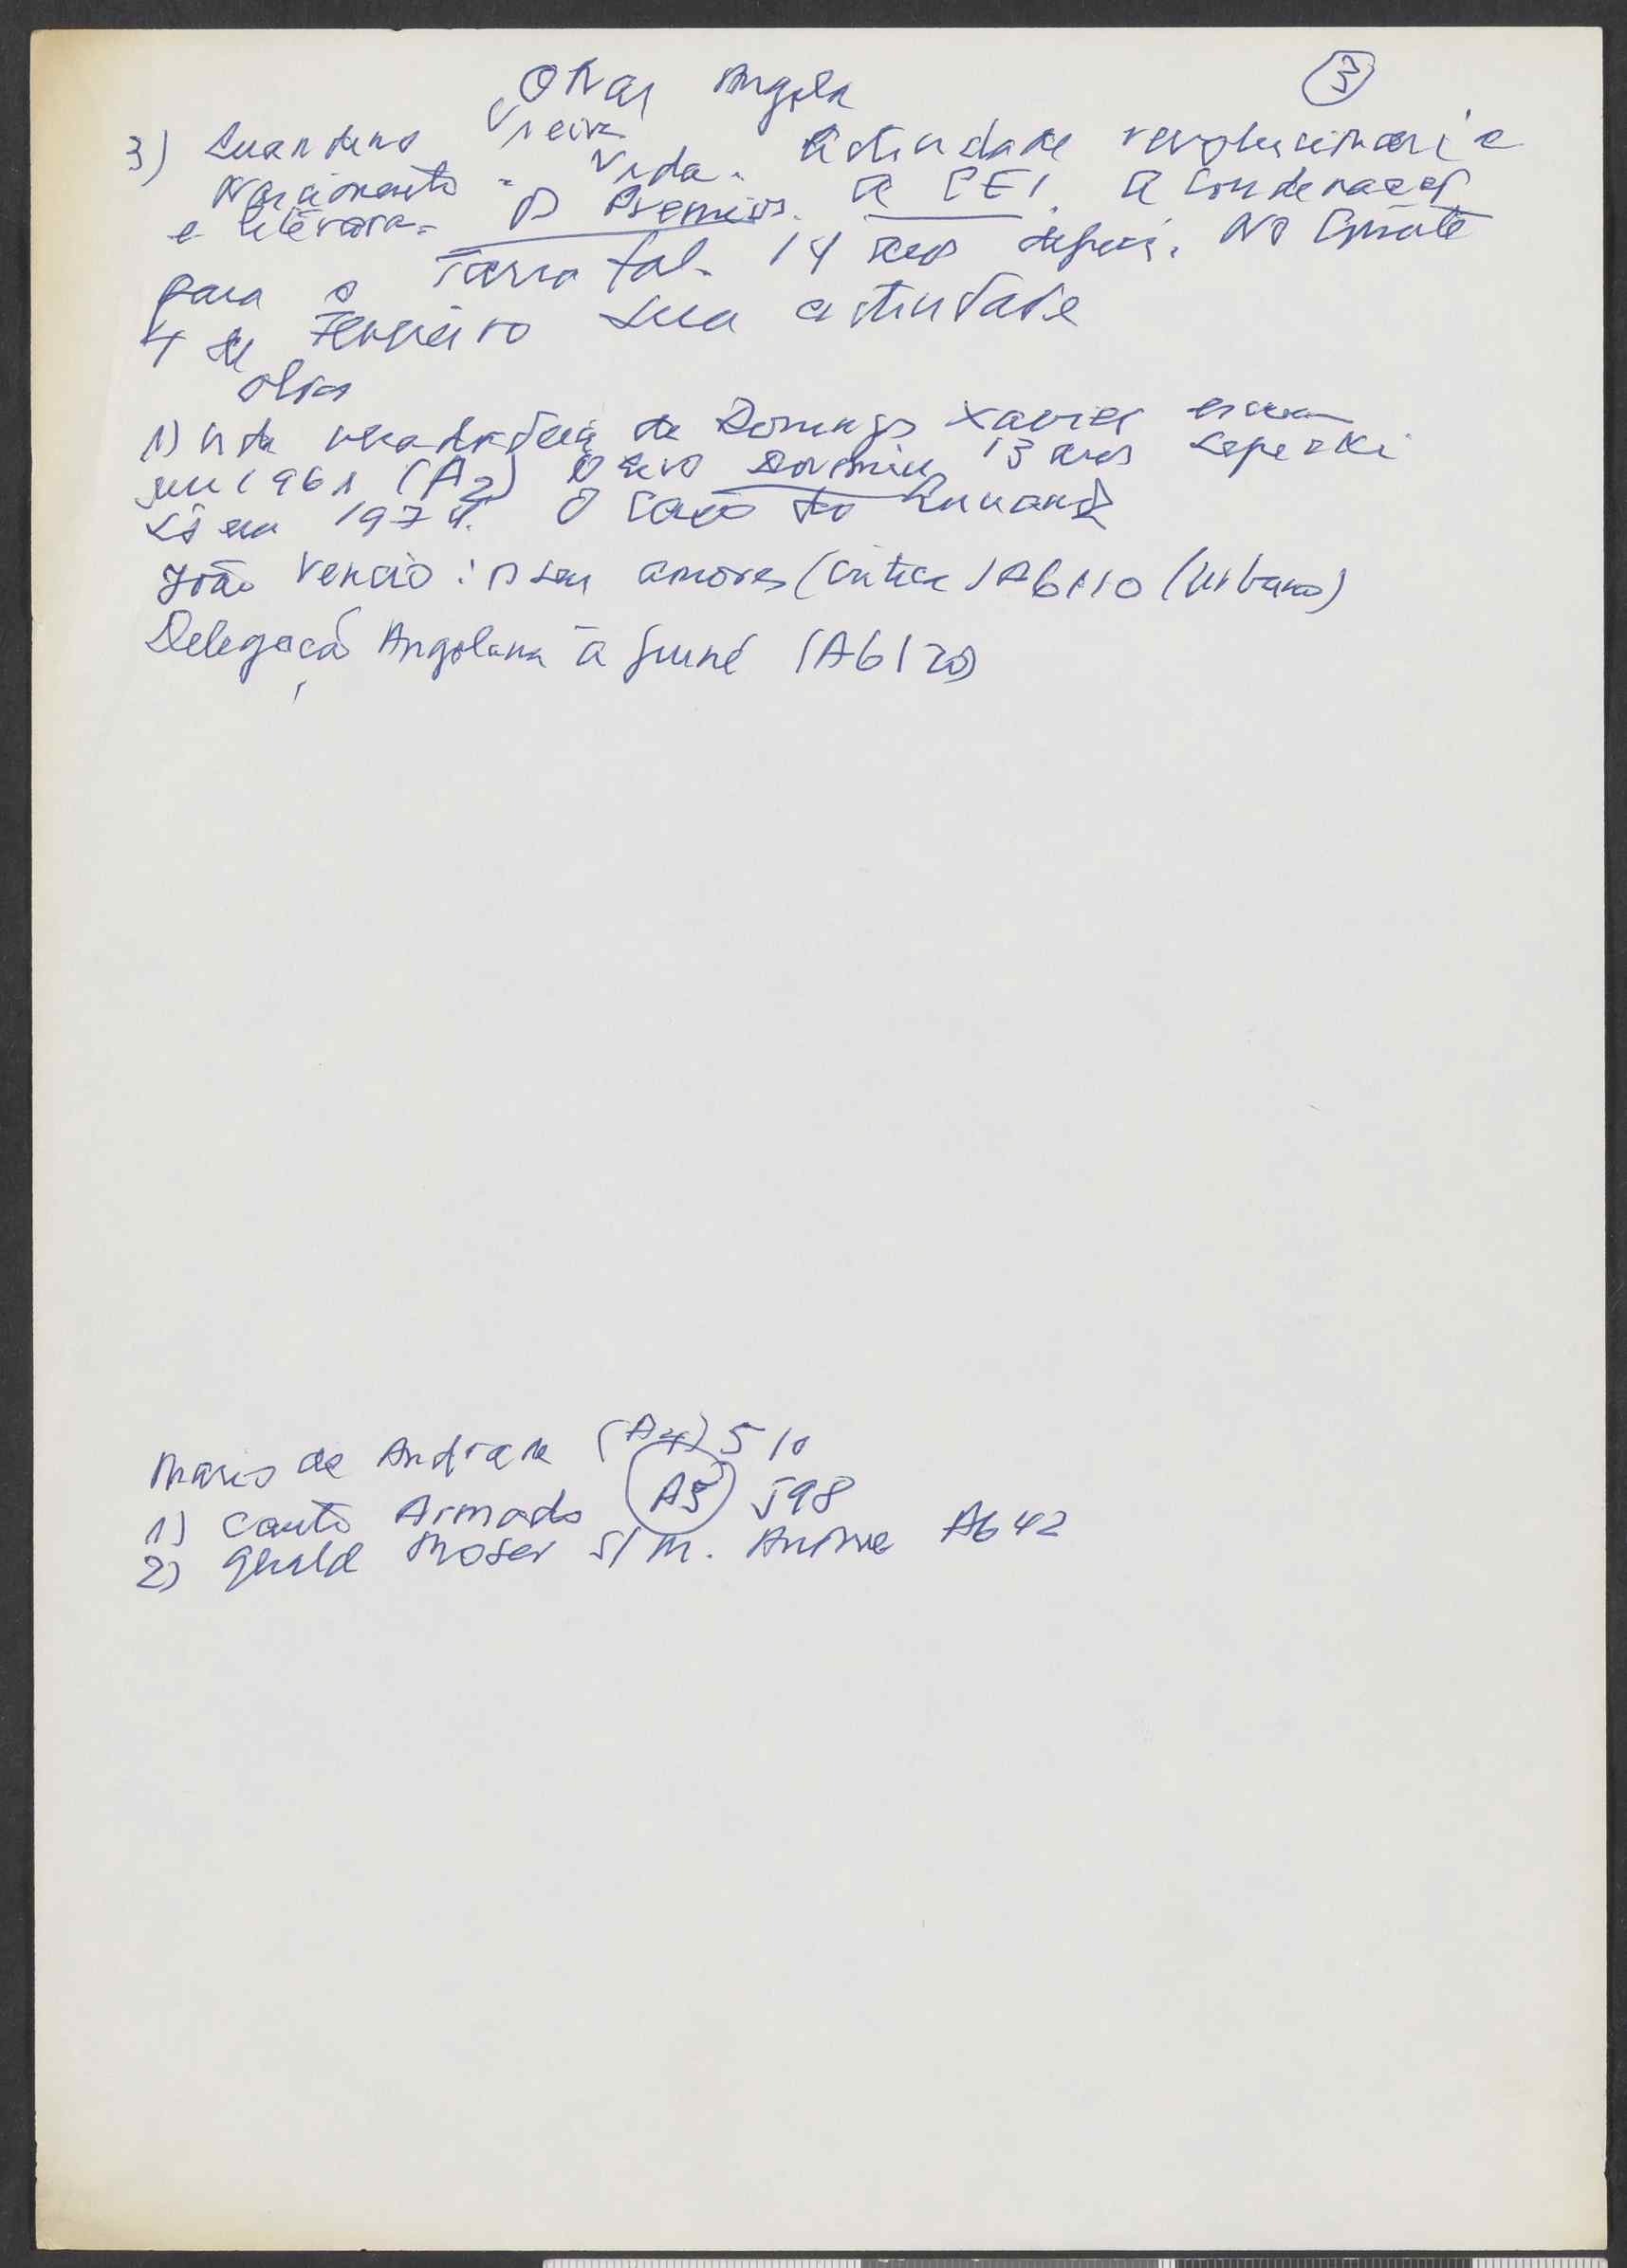 Obras Angola
3
3) Luandino Vieira
Nascimento - Vida. Actividade revolucionaria
e literaria. Os Premios. A CEI. A condenação
para o Tarrafal. 14 anos depois. No Comité
4 de Fevereiro sua actividade
obra
1) Vida verdadeira de Domingos Xavier
jun 1961 (A2) O livro 13 anos
Só em 1974. O caso do Luuanda
João Vencio: os seu amores (critica) A6110 (Urbano)
Delegação Angolana à Guiné (A6120)
Mario de Andrade (A4) 510
1) Canto Armado A5 598
2) Gerald Moser s/ M. António A642